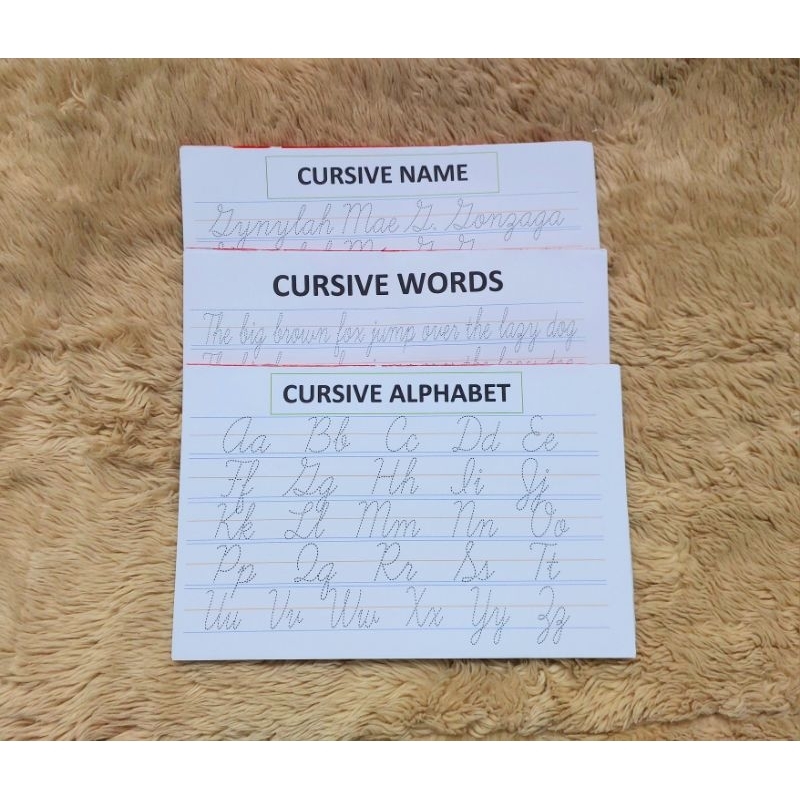 CURSIVE NAME
Gynylah Mae G. Gonzaga
CURSIVE WORDS
The big brown fox jump over the lazy dog
CURSIVE ALPHABET
Aa Bb Cc Dd Ee
Ff Gg Hh Ii Jj
Kk Ll Mm Nn Oo
Pp Qq Rr Ss Tt
Uu Vv Ww Xx Yy Zz